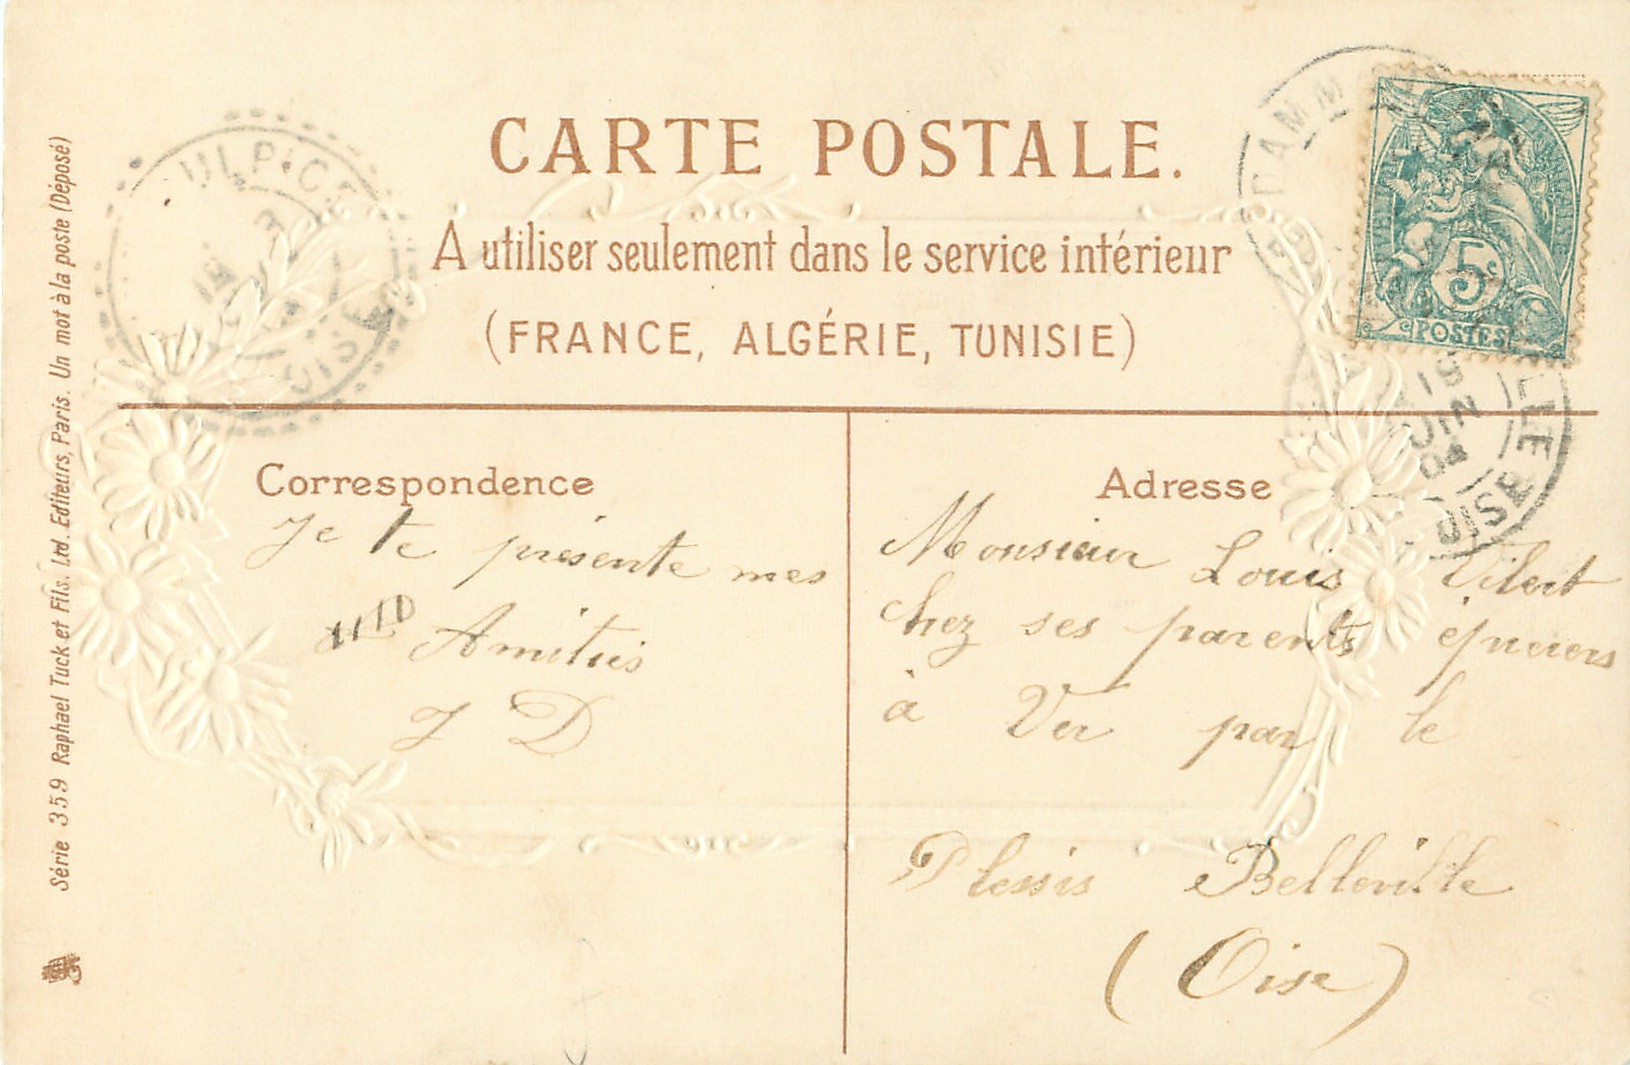 CARTE POSTALE.
A utiliser seulement dans le service intérieur
(FRANCE, ALGÉRIE, TUNISIE)
Série 359 Raphael Tuck et Fils. Ltd. Editeurs, Paris. Un mot à la poste (Déposé)
ULPICE
OISE
DAMM
5c
POSTES
19
JUIN
04
LLE
OISE
Correspondence
Je te présente mes
Amitiés
J D
Adresse
Monsieur Louis
chez ses parents épiciers
à Ver par le
Plessis Belleville
(Oise)